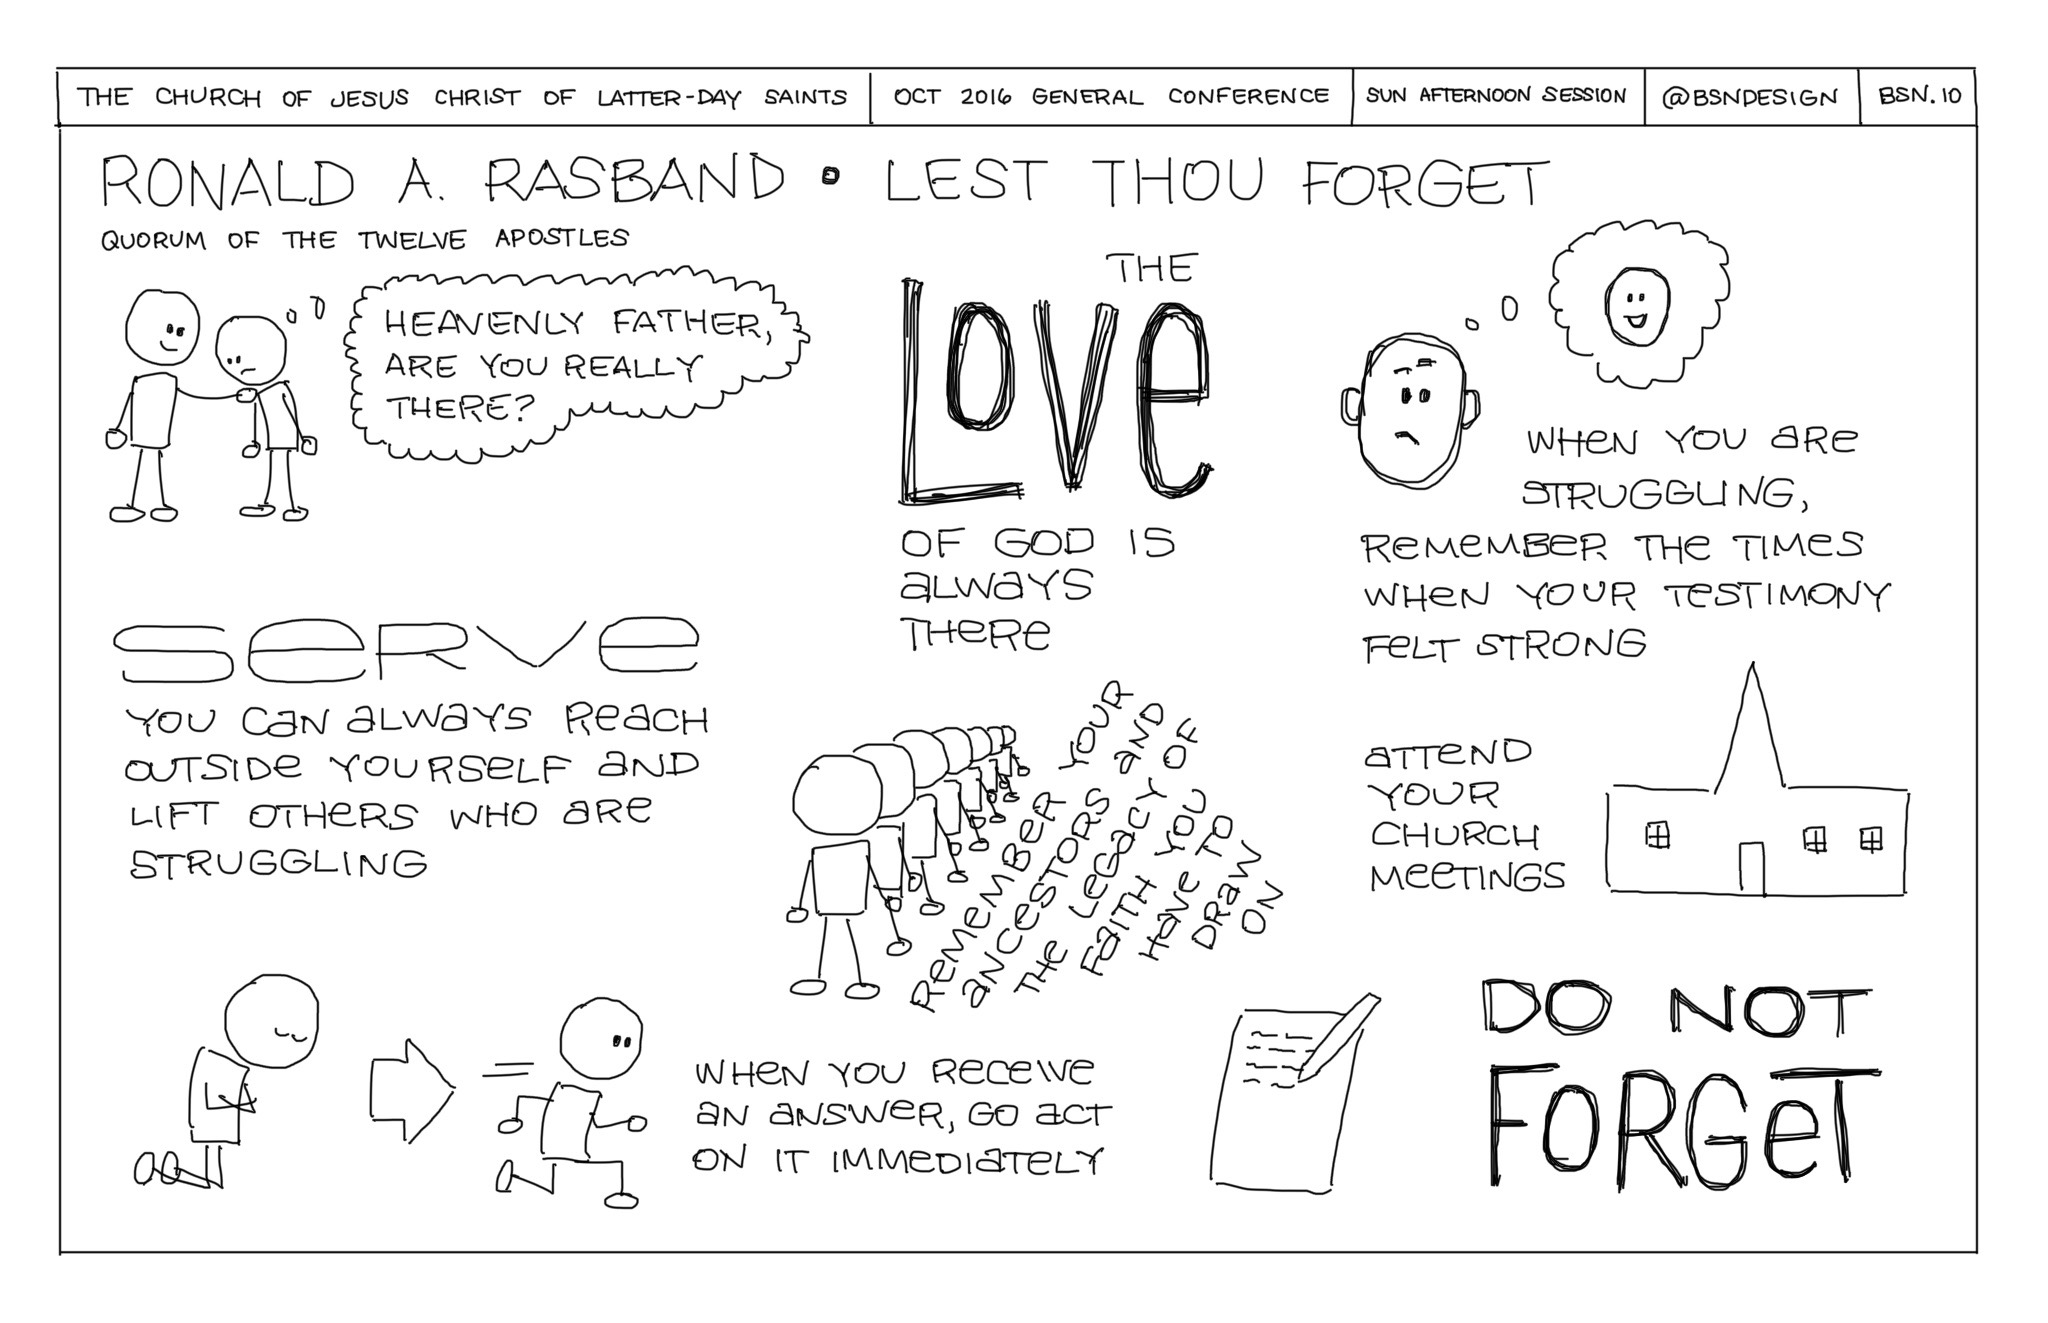 THE CHURCH OF JESUS CHRIST OF LATTER-DAY SAINTS
OCT 2016 GENERAL CONFERENCE
SUN AFTERNOON SESSION
@BSNDESIGN
BSN.10
RONALD A. RASBAND • LEST THOU FORGET
QUORUM OF THE TWELVE APOSTLES
HEAVENLY FATHER,
ARE YOU REALLY
THERE?
THE
LOVE
OF GOD IS
ALWAYS
THERE
WHEN YOU ARE
STRUGGLING,
REMEMBER THE TIMES
WHEN YOUR TESTIMONY
FELT STRONG
SERVE
YOU CAN ALWAYS REACH
OUTSIDE YOURSELF AND
LIFT OTHERS WHO ARE
STRUGGLING
REMEMBER YOUR
ANCESTORS AND
THE LEGACY OF
FAITH YOU
HAVE TO
DRAW
ON
ATTEND
YOUR
CHURCH
MEETINGS
WHEN YOU RECEIVE
AN ANSWER, GO ACT
ON IT IMMEDIATELY
DO NOT
FORGET